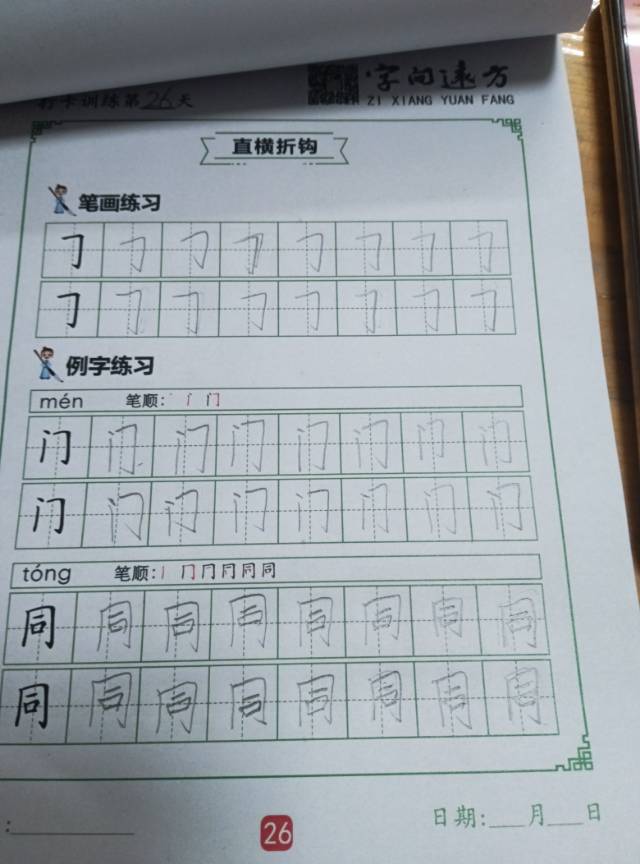 打卡训练第26天
字向远方
ZI XIANG YUAN FANG
直横折钩
笔画练习
𠃌 𠃌 𠃌 𠃌 𠃌 𠃌 𠃌 𠃌
𠃌 𠃌 𠃌 𠃌 𠃌 𠃌 𠃌 𠃌
例字练习
mén 笔顺: 丶 门
门 门 门 门 门 门 门 门
门 门 门 门 门 门 门 门
tóng 笔顺: 丨 冂 冂 同 同
同 同 同 同 同 同 同 同
同 同 同 同 同 同 同 同
26
日期:___月___日